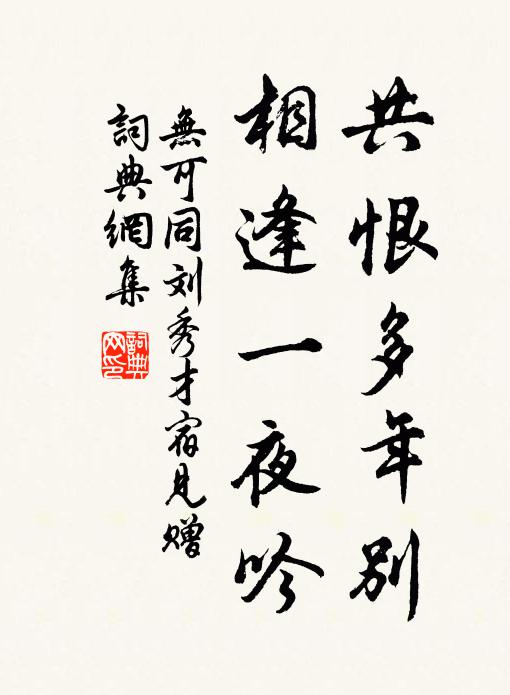 共恨多年别
相逢一夜吟
無可同刘秀才宿見贈
詞典網集
詞典网印